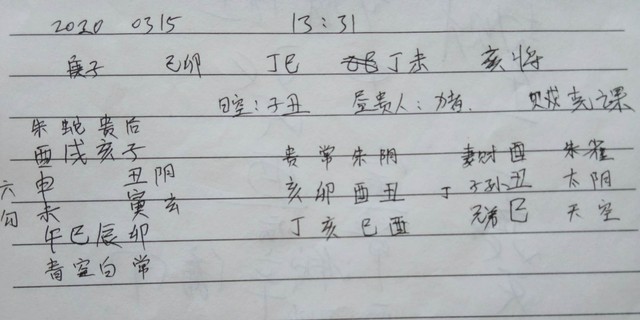 2020 0315 13:31
庚子 己卯 丁巳 丁未 亥将
日空:子丑 昼贵人:猪. 贼克之课
朱 蛇 贵 后
酉 戌 亥 子 贵 常 朱 阴 妻财 酉 朱雀
六 申 丑 阴 亥 卯 酉 丑 丁 子孙 丑 太阴
勾 未 寅 玄 丁 亥 巳 酉 兄弟 巳 天空
午 巳 辰 卯
青 空 白 常